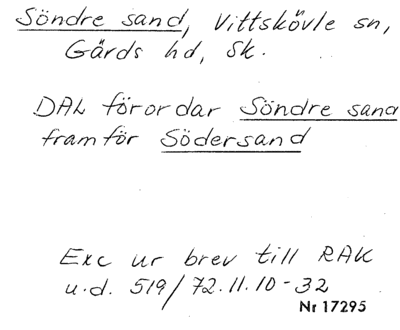 Söndre sand, Vittskövle sn,
Gärds hd, Sk.
DAL förordar Söndre sand
framför Södersand
Exc ur brev till RAK
u.d. 519/72.11.10-32
Nr 17295